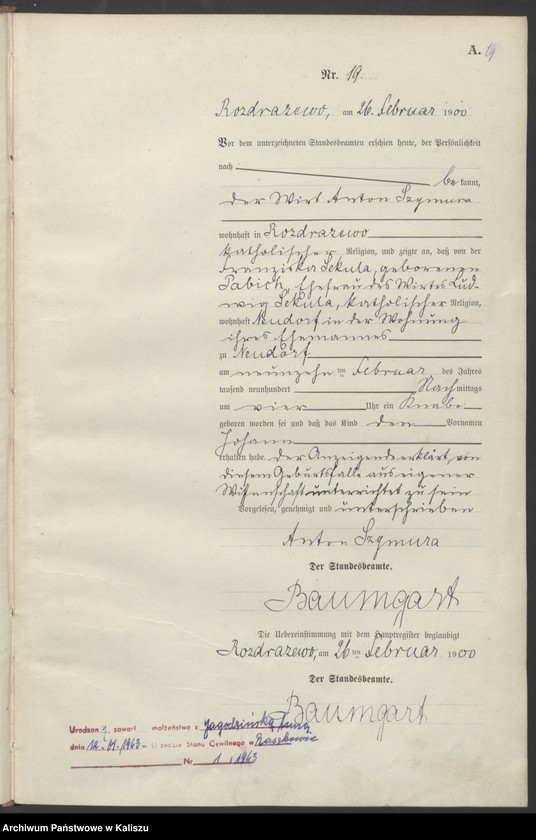 A. 19
Nr. 19
Rozdrazewo, am 26. Februar 1900
Vor dem unterzeichneten Standesbeamten erschien heute, der Persönlichkeit
nach
be kannt,
der Wirt Anton Szymura
wohnhaft in Rozdrazewo
katholischer Religion, und zeigte an, daß von der
Franziska Sekula, geborenen
Pabich, Ehefrau des Wirtes Lud-
wig Sekula, katholischer Religion,
wohnhaft Neudorf in der Wohnung
ihres Ehemannes
zu Neudorf
am neunzehnten Februar des Jahres
tausend neunhundert Nachmittags
um vier Uhr ein Knabe
geboren worden sei und daß das Kind den Vornamen
Johann
erhalten habe. Der Anzeigende erklärt, von
diesem Geburtsfalle aus eigener
Wissenschaft unterrichtet zu sein
Vorgelesen, genehmigt und unterschrieben
Anton Szymura
Der Standesbeamte.
Baumgart
Die Uebereinstimmung mit dem Hauptregister beglaubigt
Rozdrazewo, am 26ten Februar 1900
Der Standesbeamte.
Baumgart
Urodzon y zawarł małżeństwo z Jagodzińską
dnia 1963 w Urzędzie Stanu Cywilnego w Raszkowie
Nr 1 / 1963
Archiwum Państwowe w Kaliszu